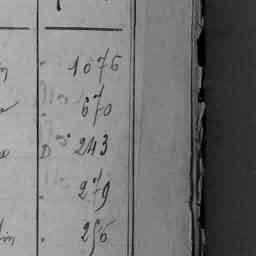 1076
670
D° 243
279
in 256